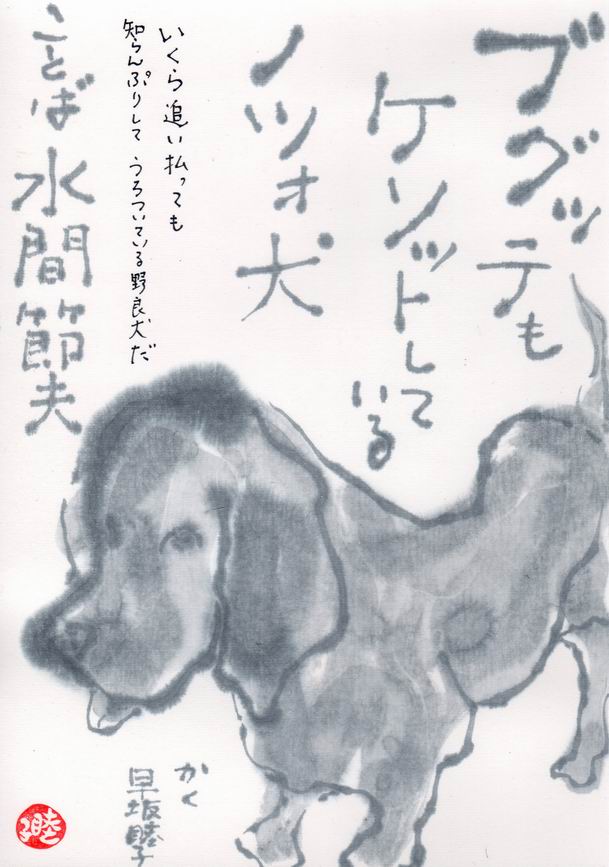 ブグッテも
ケソットして
いる
ノツォ犬
いくら追い払っても
知らんぷりして うろついている野良犬だ
ことば 水間節夫
かく
早坂睦子